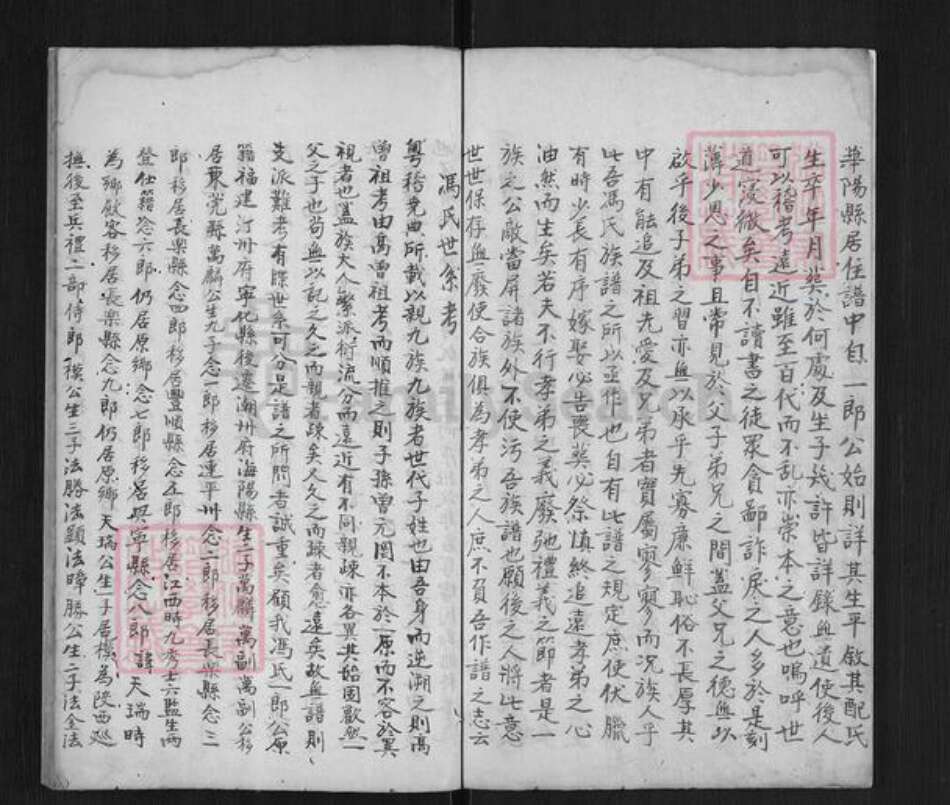 華陽縣居住譜中自一郎公始則詳其生平敘其配氏
生卒年月葬於何處及生子幾許皆詳錄無遺使後人
可以稽考遠近雖至百代而不乱亦崇本之意也嗚呼世
道寖微矣自不讀書之徒眾貪鄙詐戾之人多於是刻
薄少恩之事且常見於父子弟兄之間蓋父兄之德無以
啟乎後子弟之習亦無以承乎先寡廉鮮恥俗不長厚其
中有能追及祖先愛及兄弟者實屬寥寥而況族人乎
此吾馮氏族譜之所以亟作也自有此譜之規定庶使伏臘
有時少長有序嫁娶必告喪葬必祭慎終追遠孝弟之心
油然而生矣若夫不行孝弟之義廢弛禮義之節者是一
族之公敵當屏諸族外不使污吾族譜也願後之人將此意
世世保存無廢使合族俱為孝弟之人庶不負吾作譜之志云
馮氏世系考
粵稽堯典所載以親九族九族者世代子姓也由吾身而逆溯之則高
曾祖考由高曾祖考而順推之則子孫曾元罔不本於一原而不容於異
視者也蓋族大人繁派衍流分而遠近有不同親疎亦各異其始固歡然一
父之子也苟無以記之久之而親者疎矣又久之而疎者愈遠矣故無譜則
支派難考有牒世系可分是譜之所関者誠重矣顧我馮氏一郎公原
籍福建汀州府寧化縣後遷潮州府海陽縣生二子萬麟萬副萬副公移
居東莞縣萬麟公生九子念一郎移居連平州念二郎移居長樂縣念三
郎移居長樂縣念四郎移居豐順縣念五郎移居江西時九秀士六監生兩
登仕籍念六郎仍居原鄉念七郎移居興寧縣念八郎諱天瑞時
為鄉飲客移居長樂縣念九郎仍居原鄉天瑞公生一子居模為陝西巡
撫後至兵禮二部侍郎模公生三子法勝法顯法暲勝公生二子法全法